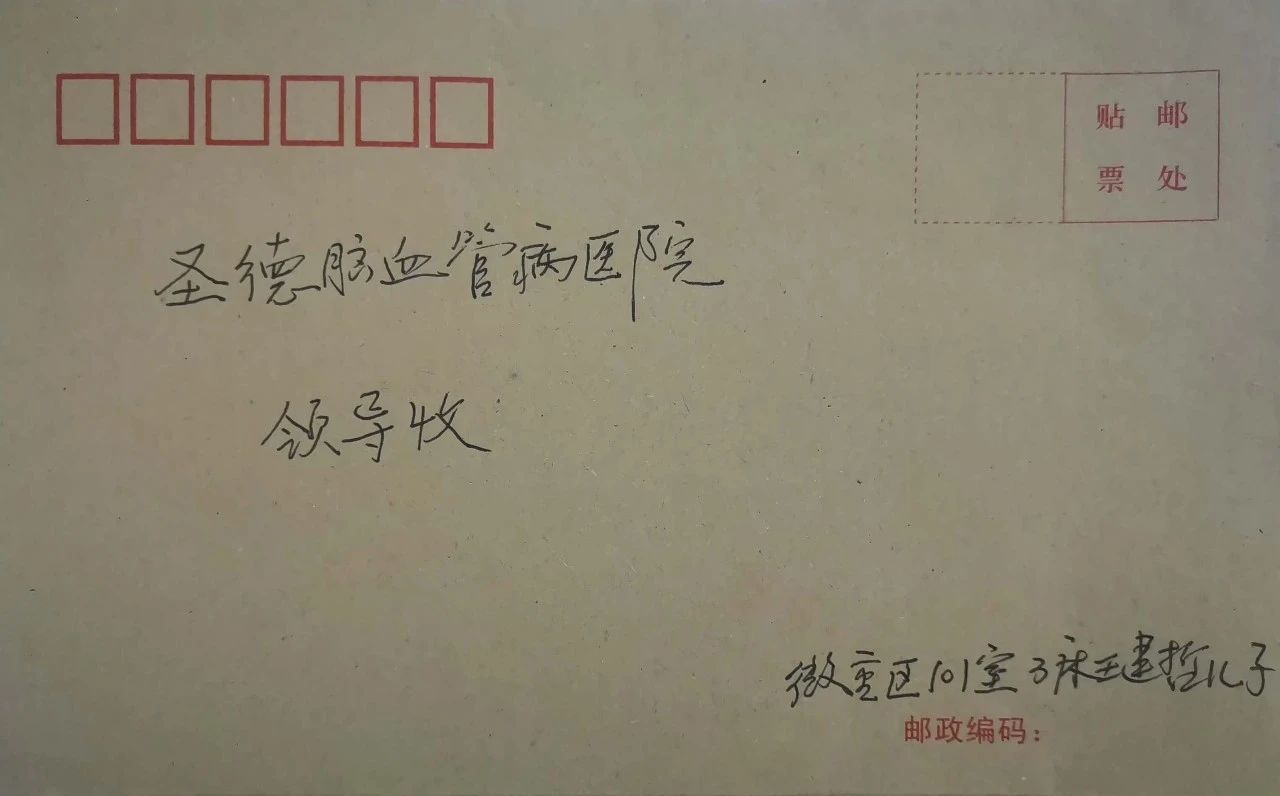 贴邮
票处
圣德脑血管病医院
领导收
微重区101室3床王建哲儿子
邮政编码：